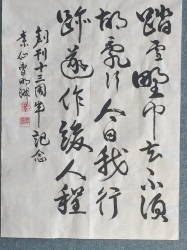 踏雪野中去不須
胡亂行今日我行
跡遂作後人程
創刊十三周年記念